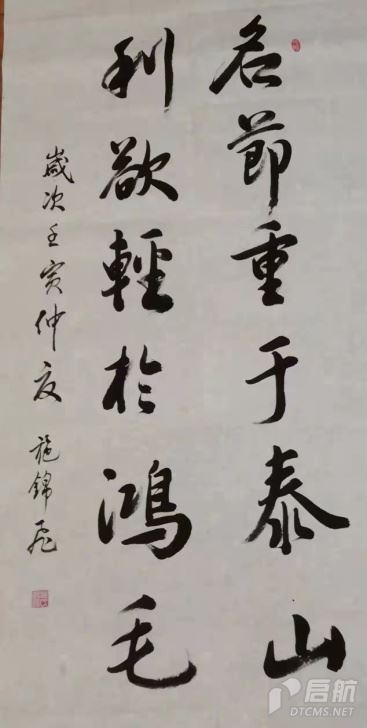 名節重于泰山
利欲輕於鴻毛
歲次壬寅仲夏 施錦飛
启航
DTCMS.NET